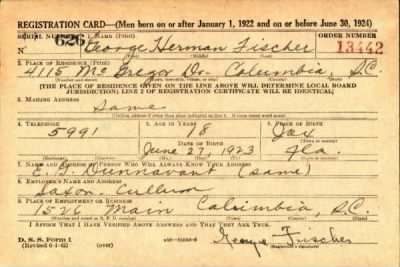 REGISTRATION CARD—(Men born on or after January 1, 1922 and on or before June 30, 1924)
SERIAL NUMBER 1. NAME (Print) ORDER NUMBER
626 George Herman Fischer 13442
2. PLACE OF RESIDENCE (Print)
4115 Mc Gregor Dr. Columbia, S.C.
[THE PLACE OF RESIDENCE GIVEN ON THE LINE ABOVE WILL DETERMINE LOCAL BOARD
JURISDICTION; LINE 2 OF REGISTRATION CERTIFICATE WILL BE IDENTICAL]
3. MAILING ADDRESS
Same
4. TELEPHONE 5. AGE IN YEARS 6. PLACE OF BIRTH
5991 18 Jax
DATE OF BIRTH
June 27, 1923 Fla.
7. NAME AND ADDRESS OF PERSON WHO WILL ALWAYS KNOW YOUR ADDRESS
E. G. Dunnavant (same)
8. EMPLOYER'S NAME AND ADDRESS
Saxon-Cullum
9. PLACE OF EMPLOYMENT OR BUSINESS
1526 Main Columbia, S.C.
I AFFIRM THAT I HAVE VERIFIED ABOVE ANSWERS AND THAT THEY ARE TRUE.
D. S. S. Form 1
George Fischer